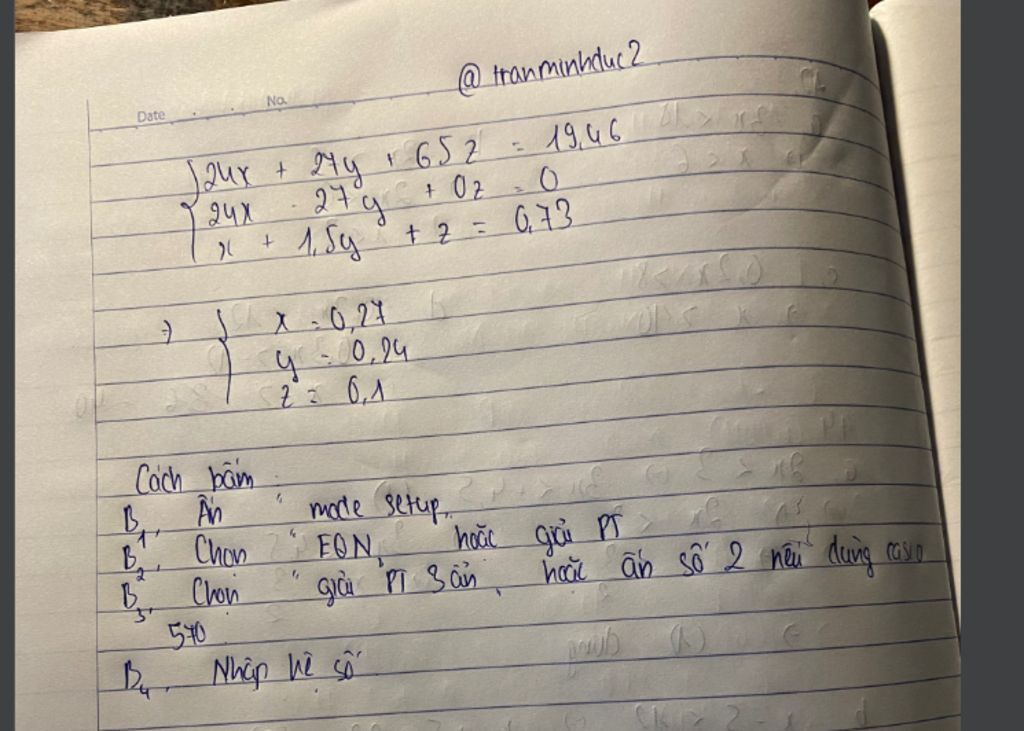 @ tranminhduc2
Date No.
24x + 27y + 65z = 19,46
24x - 27y + 0z = 0
x + 1,5y + z = 0,73
=> x = 0,27
y = 0,24
z = 0,1
Cách bấm :
B1, Ấn " mode setup"
B2, Chọn " EQN" hoặc giải PT
B3, Chọn " giải PT 3 ẩn, hoặc ấn số 2 nếu dùng casio
570
B4, Nhập hệ số